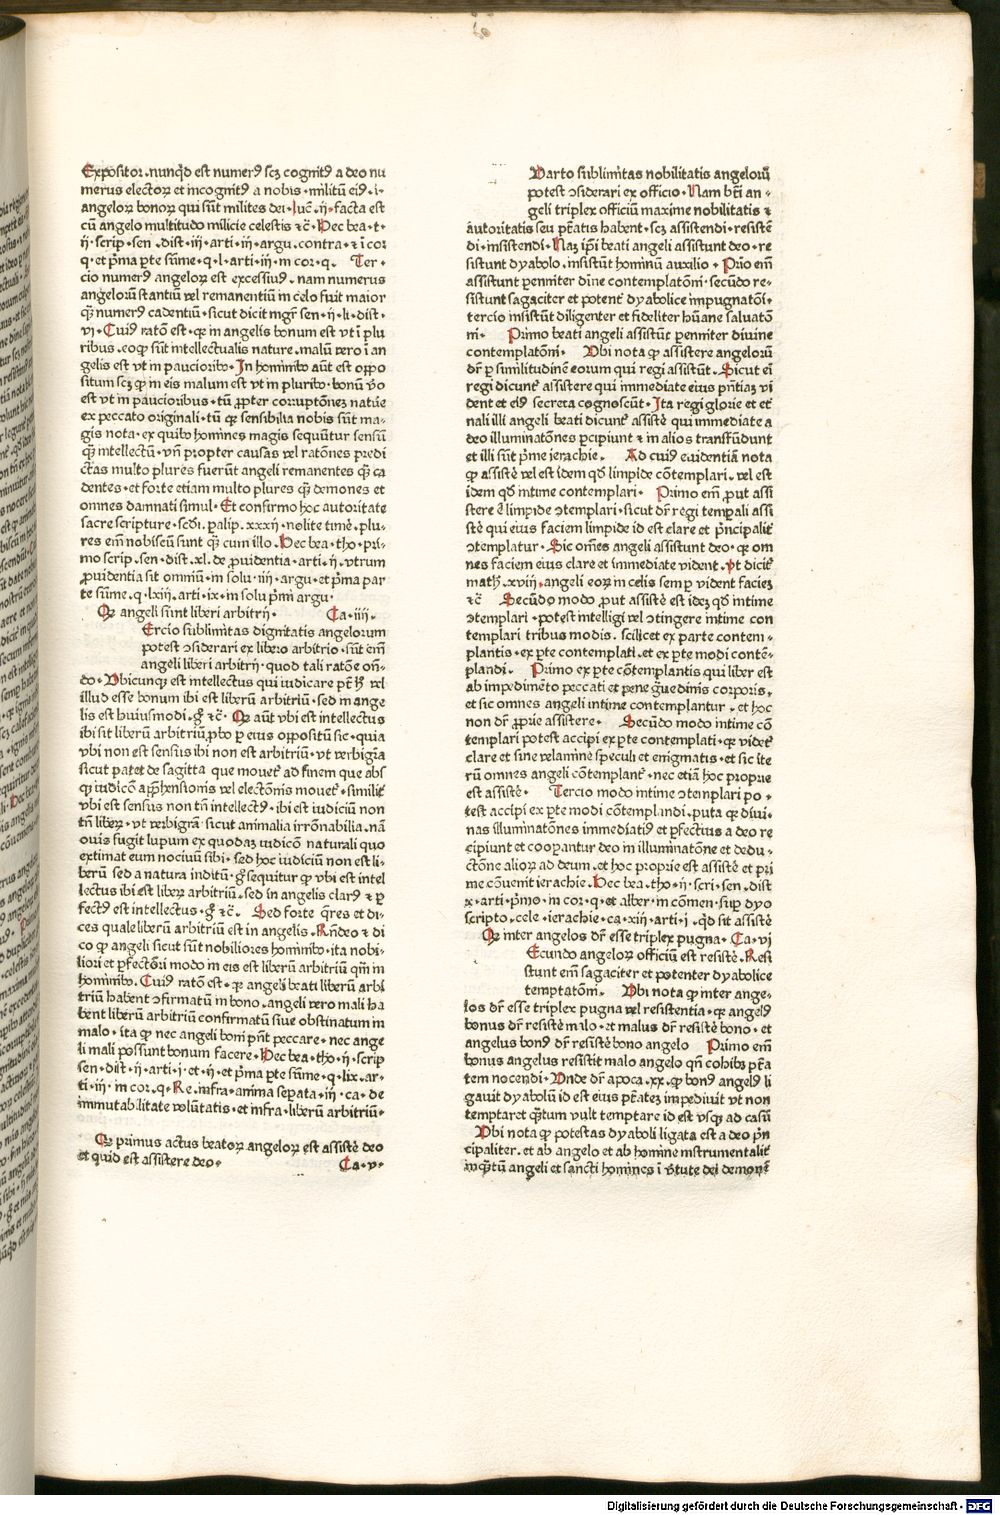 Expositor. nunq̄d est numerꝰ scꝫ cognitꝰ a deo nu
merus electoꝝ et incognitꝰ a nobis · militū eiꝰ · i·
angeloꝝ bonoꝝ qui sūt milites dei · luē · ii · facta est
cū angelo multitudo milicie celestis ⁊ē · Hec bea · t ·
ii · scrip · sen · dist · iii · arti · iii · argu · contra · ⁊ ī cor
q · et pͥma pte sūme · q · l · arti · iii · in cor · q · Ter-
cio numerꝰ angeloꝝ est excessiuꝰ · nam numerus
angeloꝝ stantiū vel remanentiū in celo fuit maior
qꝫ numerꝰ cadentiū · sicut dicit mgr̄ sen · ii · li · dist ·
vi · Cuiꝰ ratō est · qꝛ in angelis bonum est vt ī plu
ribus · eoqꝫ sūt intellectualis nature · malū vero ī an
gelis est vt in paucioribꝰ · In hominibꝰ aūt est oppo
situm scꝫ qꝫ in eis malum est vt in pluribꝰ · bonū v̄o
est vt in paucioribus · tū ꝓpter corruptōnez natūe
ex peccato originali · tū qꝛ sensibilia nobis sūt ma-
gis nota · ex quibꝰ homines magis sequūtur sensū
qꝫ intellectū · vn̄ propter causas vel ratōnes predi
ctas multo plures fuerūt angeli remanentes qꝫ ca
dentes · et forte etiam multo plures qꝫ demones et
omnes damnati simul · Et confirmo hoc autoritate
sacre scripture · scd̄i · palip · xxxij · nolite timē · plu-
res em̄ nobiscū sunt qꝫ cum illo · Hec bea · tho · pri-
mo scrip · sen · dist · xl · de ꝓuidentia · arti · ii · vtrum
ꝓuidentia sit omniū · in solu · iiii · argu · et pͥma par
te sūme · q · lxiii · arti · ix · in solu pͥmi argu ·
Qꝫ angeli sunt liberi arbitrii · Ca · iiii ·
Ercio sublimitas dignitatis angeloꝝum
potest ↄsiderari ex libero arbitrio · sūt em̄
angeli liberi arbitrii · quod tali ratōe on̄-
do · Ubicunqꝫ est intellectus qui iudicare pt̄ h̄ vel
illud esse bonum ibi est liberū arbitriū · sed in ange
lis est huiusmodi · gͦ ⁊ē · Qꝫ aūt vbi est intellectus
ibi sit liberū arbitriū ꝓbo ꝑ eius oppositū sic · quia
vbi non est sensus ibi non est arbitriū · vt verbigr̄a
sicut patet de sagitta que mouet̄ ad finem que absꝗ
iudicō app̄hensionis vel electōnis mouet̄ · similit̄
vbi est sensus non tn̄ intellectꝰ · ibi est iudiciū non
tn̄ liberꝫ · vt verbigr̄a sicut animalia irrōnabilia · nā
ouis fugit lupum ex quodaꝫ iudicō naturali quo
extimat eum nociuū sibi · sed hoc iudiciū non est li-
berū sed a natura inditū · gͦ sequitur qꝫ vbi est intel
lectus ibi est liberꝫ arbitriū · sed in angelis clarꝰ ⁊ ꝑ
fectꝰ est intellectus · gͦ ⁊ē · Sed forte q̄res et di-
ces quale liberū arbitriū est in angelis · Rn̄deo ⁊ di
co qꝫ angeli sicut sūt nobiliores hominibꝰ · ita nobi-
liori et ꝑfectōri modo in eis est liberū arbitriū qm̄ in
hominibꝰ · Cuiꝰ ratō est · qꝛ angeli beati liberū arbi
triū habent ↄfirmatū in bono · angeli vero mali ha
bent liberū arbitriū confirmatū siue obstinatum in
malo · ita qꝫ nec angeli boni pn̄t peccare · nec ange
li mali possunt bonum facere · Hec bea · tho · ii · scrip
sen · dist · ii · arti · i · et · ii · et pͥma ꝑte sūme · q · lix · ar-
ti · iii · in cor · q · Re · infra · anima sepata · iii · ca · de
immutabilitate volūtatis · et infra · liberū arbitriū ·
Qꝫ primus actus beatoꝝ angeloꝝ est assistē deo
et quid est assistere deo · Ca · v ·
Uarto sublimitas nobilitatis angeloꝝū
potest ↄsiderari ex officio · Nam bt̄i an-
geli triplex officiū maxime nobilitatis ⁊
autoritatis seu pt̄atis habent · scꝫ assistendi · resistē
di · insistendi · Naꝫ ip̄i beati angeli assistunt deo · re
sistunt dyabolo · insistūt hominū auxilio · Prīo em̄
assistunt penniter diīne contemplatōni · secūdo re-
sistunt sagaciter et potent̄ dyabolice impugnatōi ·
tercio insistūt diligenter et fideliter hūane saluatō
ni · Primo beati angeli assistūt penniter diuine
contemplatōni · Ubi nota qꝫ assistere angeloꝝū
dr̄ ꝑ similitudinē eorum qui regi assistūt · Sicut ei
regi dicunt̄ assistere qui immediate eius pn̄tiaꝫ vi
dent et eiꝰ secreta cognoscūt · Ita regi glorie et et̄
nali illi angeli beati dicunt̄ assistē qui immediate a
deo illuminatōnes ꝑcipiunt ⁊ in alios transfūdunt
et illi sūt pͥme ierachie · Ad cuiꝰ euidentiā nota
qꝫ assistē vel est idem qd̄ limpide cōtemplari · vel est
idem qd̄ intime contemplari · Primo em̄ ꝓut assi
stere ē limpide ↄtemplari · sicut dr̄ regi tempali assi
stē qui eius faciem limpide id est clare et pͥncipalit̄
ↄtemplatur · Sic om̄es angeli assistunt deo · qꝛ om
nes faciem eius clare et immediate vident · vt dicit̄
math̄ · xviij · angeli eoꝝ in celis semꝑ vident facieꝫ
⁊ē Secūdo modo ꝓut assistē est ideꝫ qd̄ intime
ↄtemplari · potest intelligi vel ↄtingere intime con
templari tribus modis · scilicet ex parte contem-
plantis · ex pte contemplati · et ex pte modi contē-
plandi · Primo ex pte cōtemplantis qui liber est
ab impedimēto peccati et pene gͣuedinis corporis ·
et sic omnes angeli intime contemplantur · et hoc
non dr̄ ꝓprie assistere · Secūdo modo intime cō
templari potest accipi ex pte contemplati · qꝛ videt̄
clare et sine velamine speculi et enigmatis · et sic ite
rū omnes angeli cōtemplant̄ · nec etiā hoc proprie
est assistē · Tercio modo intime ↄtemplari po ·
test accipi ex pte modi cōtemplandi · puta qꝛ diui-
nas illuminatōnes immediatiꝰ et ꝑfectius a deo re
cipiunt et cooꝑantur deo in illuminatōne et dedu-
ctōne alioꝝ ad deum · et hoc proprie est assistē et pri
me cōuenit ierachie · Hec bea · tho · ii · scri · sen · dist
x · arti · pͥmo · in cor · q · et alber · in cōmen · sup dyo
scripto · cele · ierachie · ca · xiii · arti · i · qd̄ sit assistē
Qꝫ inter angelos dr̄ esse triplex pugna · Ca · vi
Ecundo angeloꝝ officiū est resistē · Resi
stunt em̄ sagaciter et potenter dyabolice
temptatōni · Ubi nota qꝫ inter ange-
los dr̄ esse triplex pugna vel resistentia · qꝛ angelꝰ
bonus dr̄ resistē malo · et malus dr̄ resistē bono · et
angelus bonꝰ dr̄ resistē bono angelo Primo em̄
bonus angelus resistit malo angelo qn̄ cohibꝫ pt̄a
tem nocendi · Unde dr̄ apoca · xx · qꝫ bonꝰ angelꝰ li
gauit dyabolū id est eius pt̄ateꝫ impediuit vt non
temptaret qꝫtum vult temptare id est vsqꝫ ad casū
Ubi nota qꝫ potestas dyaboli ligata est a deo pͥn
cipaliter · et ab angelo et ab homine instrumentalit̄
inqꝫtū angeli et sancti homines ī v̄tute dei demonē
Digitalisierung gefördert durch die Deutsche Forschungsgemeinschaft - DFG